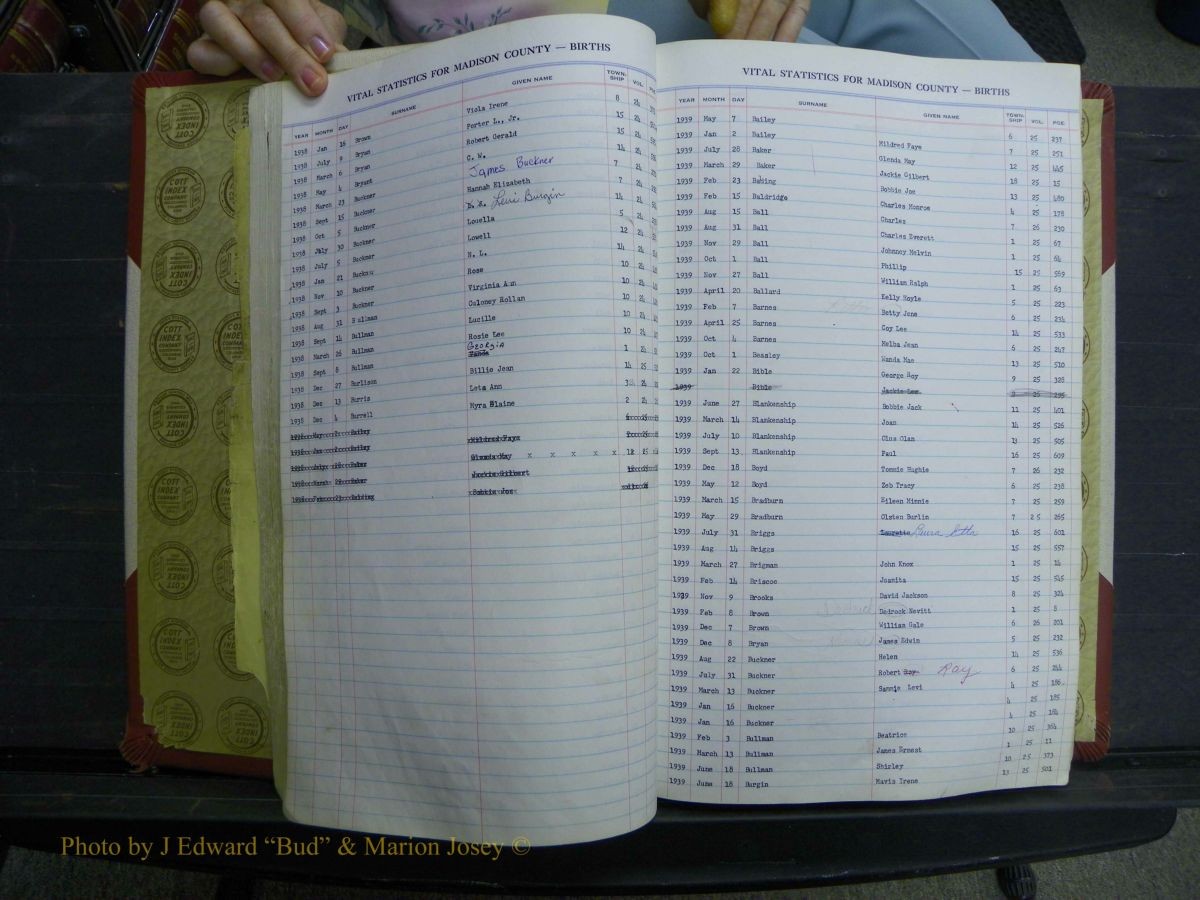 VITAL STATISTICS FOR MADISON COUNTY — BIRTHS
YEAR MONTH DAY SURNAME GIVEN NAME TOWN-SHIP VOL. PGE.
1938 Jan 16 Brown Viola Irene 8 24
1938 July 9 Bryan Porter L., Jr. 15 24
1938 March 6 Bryan Robert Gerald 15 24
1938 May 4 Bryant C. W. 14 24
1938 March 23 Buckner James Buckner 7 24
1938 Sept 15 Buckner Hannah Elizabeth 7 24
1938 Oct 5 Buckner Levi Burgin 14 24
1938 July 30 Buckner Louella 5 24
1938 July 5 Buckner Lowell 12 24
1938 Jan 21 Buckner N. L. 14 24
1938 Nov 10 Buckner Rose 10 24
1938 Sept 3 Buckner Virginia Ann 10 24
1938 Aug 31 Bullman Culoney Rollan 10 24
1938 Sept 14 Bullman Lucille 10 24
1938 March 26 Bullman Rosie Lee 10 24
1938 Sept 8 Bullman Georgia 1 24
1938 Dec 27 Burlison Billie Jean 14 25
1938 Dec 13 Burris Leta Ann 3 24
1938 Dec 4 Burrell Myra Elaine 2 24
Bailey Mildred Faye
Bailey Glenda May x x x x x 12 25
Baker Jackie Gilbert
Baker Bobbie Joe
VITAL STATISTICS FOR MADISON COUNTY — BIRTHS
YEAR MONTH DAY SURNAME GIVEN NAME TOWN-SHIP VOL. PGE.
1939 May 7 Bailey
1939 Jan 2 Bailey
1939 July 28 Baker
1939 March 29 Baker
1939 Feb 23
1939 Feb 15 Baldridge
1939 Aug 15 Ball
1939 Aug 31 Ball
1939 Nov 29 Ball
1939 Oct 1 Ball
1939 Nov 27 Ball
1939 April 20 Ballard
1939 Feb 7 Barnes
1939 April 25 Barnes
1939 Oct 4 Barnes
1939 Oct 1 Beasley
1939 Jan 22 Bible
1939 Bible
1939 June 27 Blankenship
1939 March 14 Blankenship
1939 July 10 Blankenship
1939 Sept 13 Blankenship
1939 Dec 18 Boyd
1939 May 12 Boyd
1939 March 15 Bradburn
1939 May 29 Bradburn
1939 July 31 Briggs
1939 Aug 14 Briggs
1939 March 27 Brigman
1939 Feb 14 Briscoe
1939 Nov 9 Brooks
1939 Feb 8 Brown
1939 Dec 7 Brown
1939 Dec 8 Bryan
1939 Aug 22 Buckner
1939 July 31 Buckner
1939 March 13 Buckner
1939 Jan 16 Buckner
1939 Jan 16 Buckner
1939 Feb 3 Bullman
1939 March 13 Bullman
1939 June 18 Bullman
1939 June 18 Burgin
Mildred Faye
Glenda May
Jackie Gilbert
Bobbie Joe
Charles Monroe
Charles
Charles Everett
Johnney Melvin
Phillip
William Ralph
Kelly Hoyle
Betty Jene
Coy Lee
Melba Jean
Wanda Mae
George Roy
Jackie Lee
Bobbie Jack
Joan
Cius Olan
Paul
Tommie Hughie
Zeb Tracy
Eileen Minnie
Olsten Burlin
Lauretta Laura Etta
John Knox
Juanita
David Jackson
Dedrock Nevitt
William Gale
James Edwin
Helen
Robert Roy Ray
Sammie Levi
Beatrice
James Ernest
Shirley
Mavis Irene
6 25 237
7 25 251
12 25 445
18 25 15
13 25 480
4 25 178
7 26 230
1 25 67
1 25 64
15 25 559
1 25 63
5 25 223
6 25 234
14 25 533
6 25 247
13 25 510
9 25 328
2 25 295
11 25 401
14 25 526
13 25 505
16 25 609
7 26 232
6 25 238
7 25 259
7 25 265
16 25 601
15 25 557
1 25 14
15 25 545
8 25 324
1 25 8
6 26 201
5 25 232
14 25 536
6 25 244
4 25 186
4 25 185
4 25 184
10 25 364
1 25 11
10 25 373
13 25 501
COTT INDEX COMPANY
Photo by J Edward “Bud” & Marion Josey ©